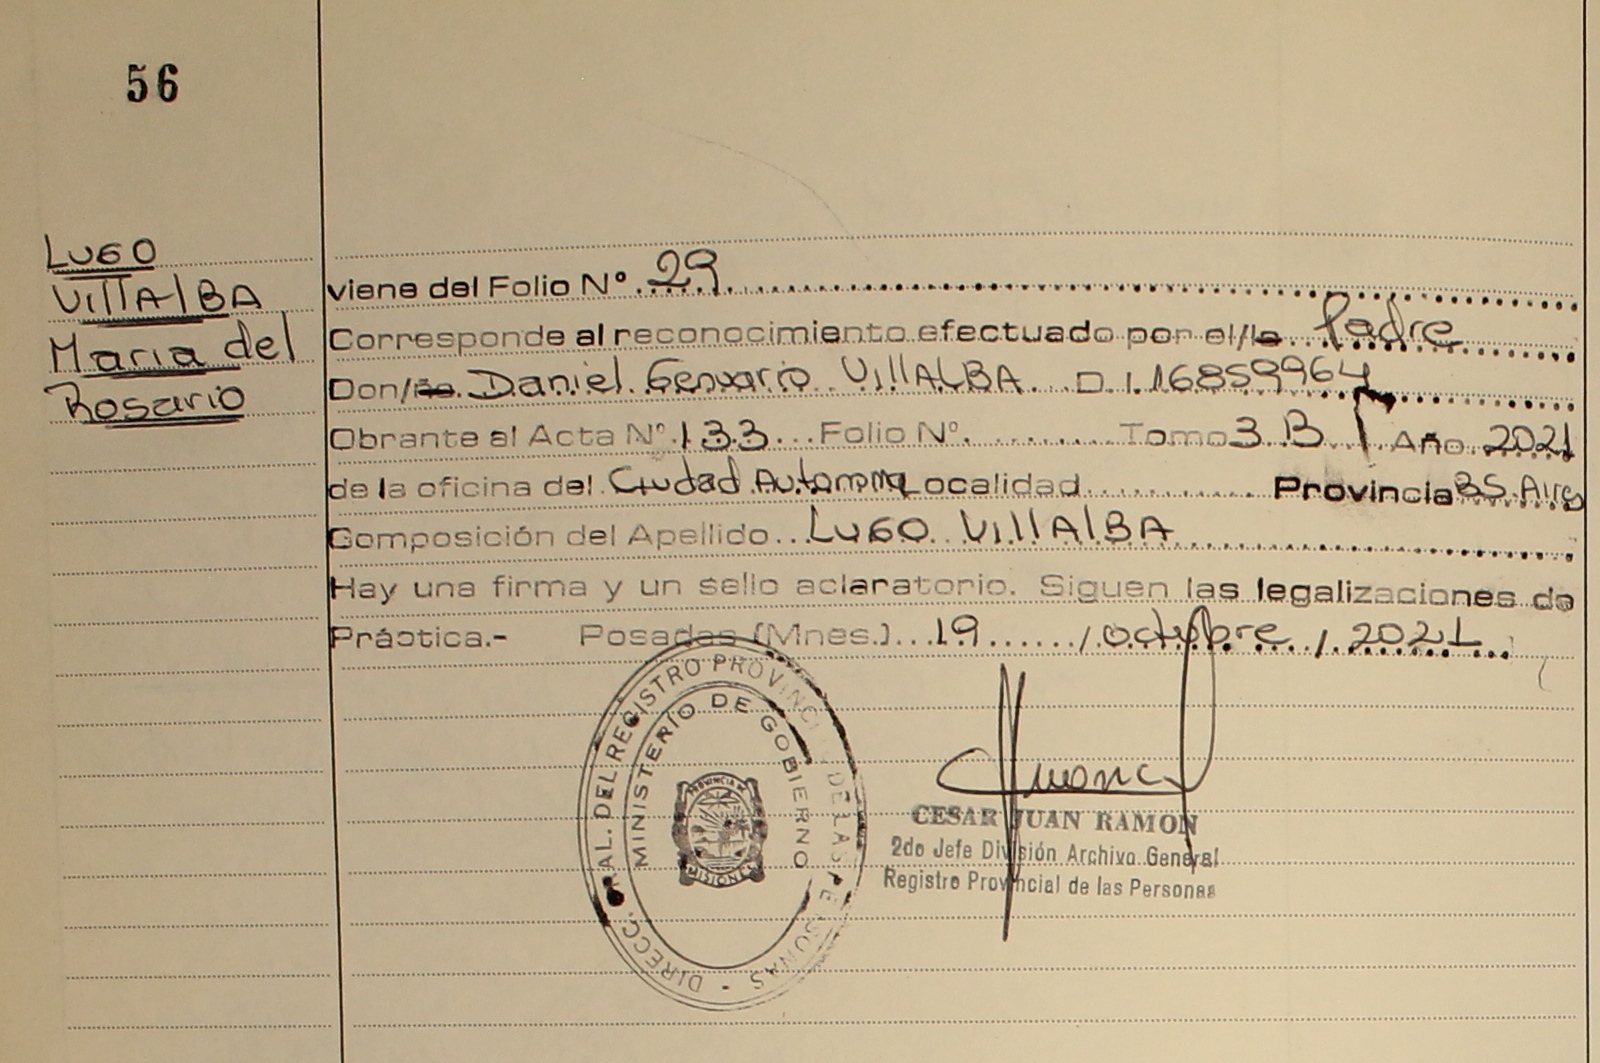 56
LUGO
VillAlBA
Maria del
Rosario
viene del Folio Nº 29
Corresponde al reconocimiento efectuado por el/la Padre
Don/ña Daniel Genuario VillALBA D.I. 16859964
Obrante al Acta Nº 133 Folio Nº Tomo 3 B Año 2021
de la oficina del Ciudad Autonoma Localidad Provincia BS. Aires
Composición del Apellido LUGO VillAlBA
Hay una firma y un sello aclaratorio. Siguen las legalizaciones de
Práctica.- Posadas (Mnes.) 19 / octubre / 2021
DIRECC. GRAL. DEL REGISTRO PROVINCIAL DE LAS PERSONAS -
MINISTERIO DE GOBIERNO
PROVINCIA DE
MISIONES
CESAR JUAN RAMON
2do Jefe División Archivo General
Registro Provincial de las Personas